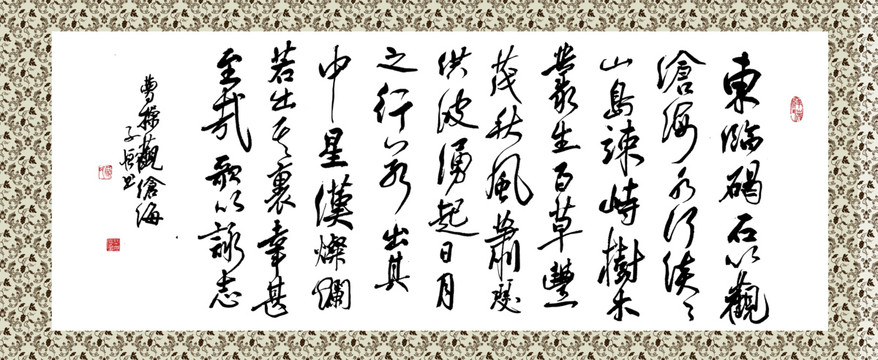 東臨碣石以觀
滄海水何淡々
山島竦峙樹木
叢生百草豐
茂秋風蕭瑟
洪波湧起日月
之行若出其
中星漢燦爛
若出其裏幸甚
至哉歌以詠志
曹操觀滄海
子恒书